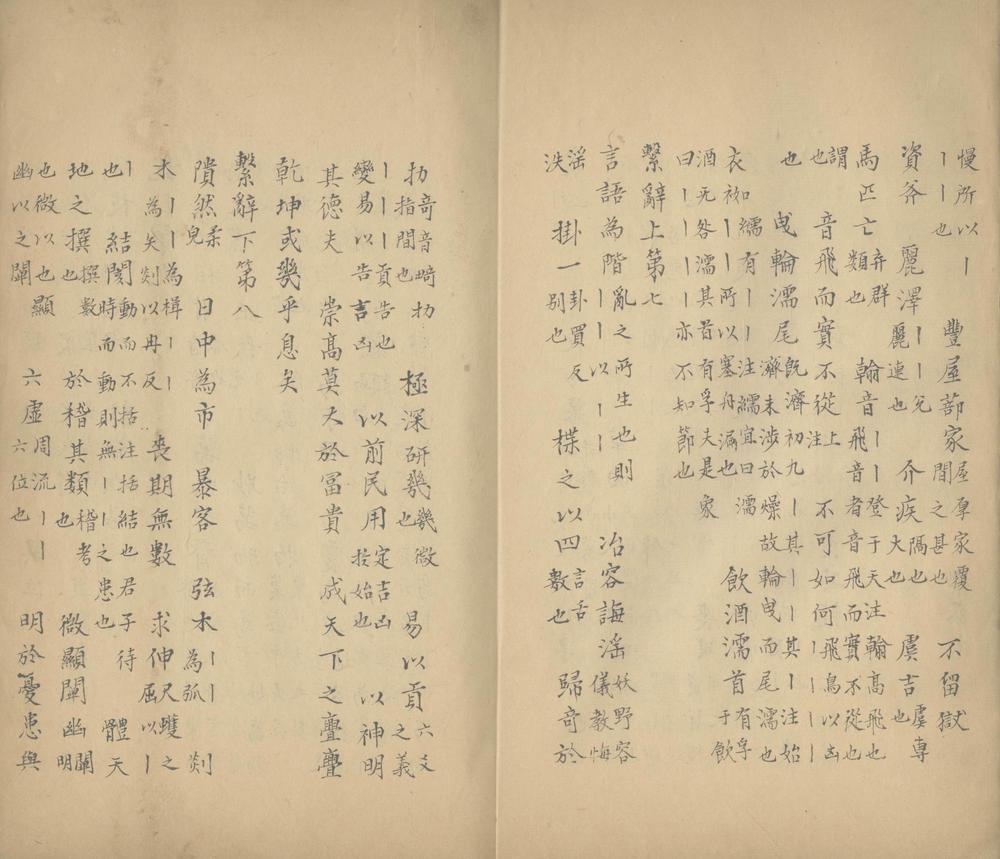 慢所以丨丨丨也 豐屋蔀家屋厚家覆間之甚也 不留獄
資斧 麗澤丨丨兌麗連也 介疾隔也大也 虞吉虞專也
馬匹亡棄群類也 翰音丨登于天注翰高飛也飛音者音飛而實不從也
謂也 音飛而實不從上注 不可如何丨飛鳥以凶丨丨丨
也 曳輪濡尾既濟初九丨其丨丨其丨丨注始濟未涉於燥故輪曳而尾濡也
衣袽繻有丨丨注繻宜曰濡丨丨所以塞舟漏也 飲酒濡首有孚于飲
酒无咎濡其首有孚夫是曰丨丨丨丨亦不知節也 象
繫辭上第七
言語為階亂之所生也則丨丨以丨丨 冶容誨淫妖野容儀教悔
淫泆 掛一卦買反別也 揲之以四言舌數也 歸奇於
扐奇音﨑扐指間也 極深研幾幾微也 易以貢六爻之義
丨丨貢告也變易以告吉凶 以前民用定吉凶於始也 以神明
其德夫 崇高莫大於富貴 成天下之亹亹
乾坤或幾乎息矣
繫辭下第八
隤然柔皃 日中為市 暴客 弦木丨丨為弧 剡
木丨丨為楫丨丨為矢剡以冉反 喪期無數 求伸尺蠖之屈以丨
丨也 結閡動而不括注括結也君子待時而動則無丨丨之患也 體天
地之撰撰數也 於稽其類稽考也 微顯闡幽闡明
也微以之幽以之闡也 顯 六虛周流丨六位也 明於憂患與